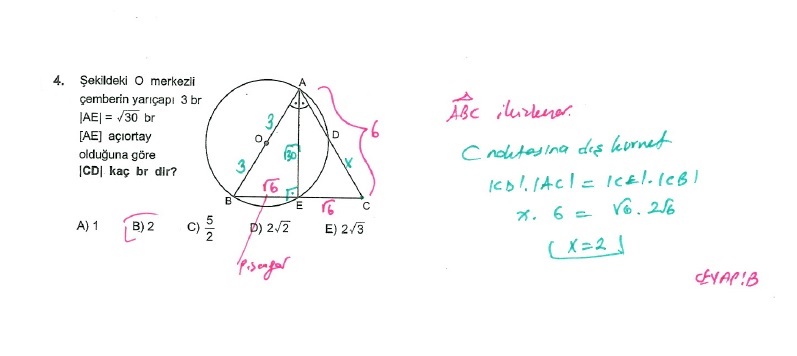 4. Şekildeki O merkezli
çemberin yarıçapı 3 br
|AE| = √30 br
[AE] açıortay
olduğuna göre
|CD| kaç br dir?
A) 1 B) 2 C) 5/2 D) 2√2 E) 2√3
A
3
O
D
6
3
√30
x
√6
B
E
√6
C
Pisagor
ABC ikizkenar.
C noktasına dış kuvvet
|CD|.|AC| = |CE|.|CB|
x. 6 = √6. 2√6
x=2
CEVAP:B